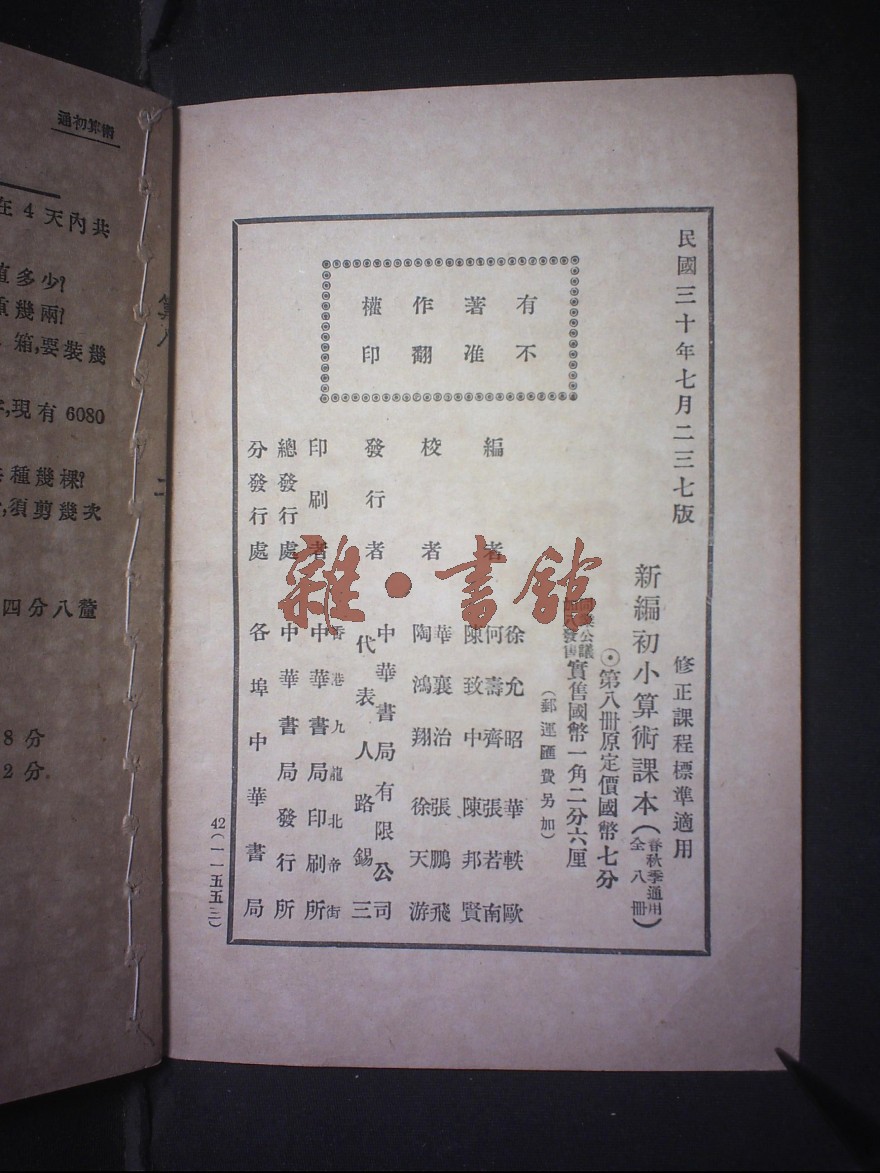 民國三十年七月二三七版
修正課程標準適用
新編初小算術課本(春秋季通用 全八冊)
⊙第八冊原定價國幣七分
實售國幣一角二分六厘
(郵運匯費另加)
有著作權
不准翻印
編者
徐允昭 華軼歐
何壽齊 張若南
陳致中 陳邦賢
校者
華襄治 張鵬飛
陶鴻翔 徐天游
發行者
中華書局有限公司
代表人路錫三
印刷者
香港九龍北帝街
中華書局印刷所
總發行處
中華書局發行所
分發行處
各埠中華書局
42(一一五五三)
雜·書館
算術初通
在4天內共
值多少?
重幾兩?
箱,要裝幾
現有6080
種幾棵?
須剪幾次
四分八釐
8分
2分.